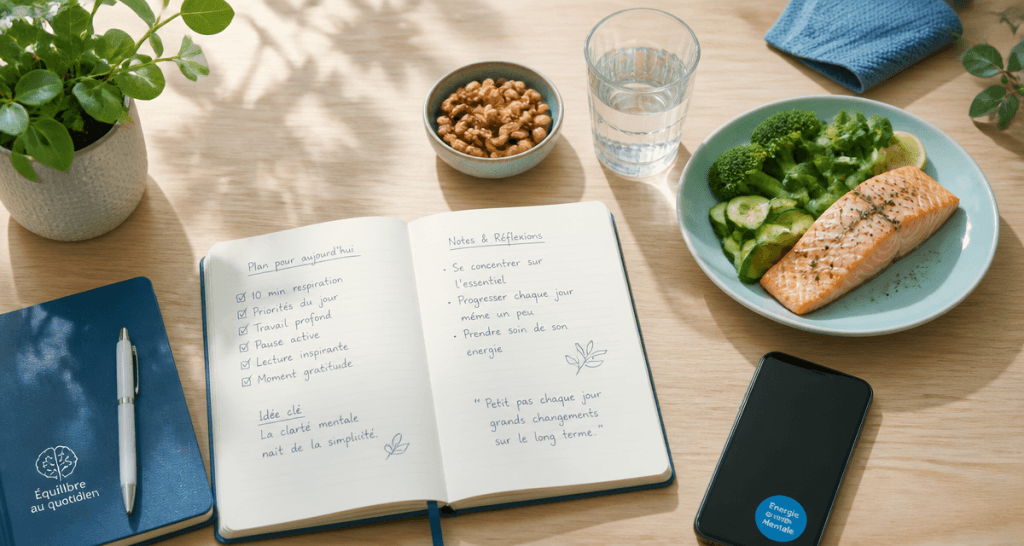 Plan pour aujourd'hui
☑ 10 min. respiration
☑ Priorités du jour
☑ Travail profond
☑ Pause active
☑ Lecture inspirante
☑ Moment gratitude
Idée clé
La clarté mentale
nait de la simplicité.
Notes & Réflexions
• Se concentrer sur
l'essentiel
• Progresser chaque jour
même un peu
• Prendre soin de son
energie
" Petit pas chaque jour
grands changements
sur le long terme."
Équilibre
au quotidien
Energie
Mentale